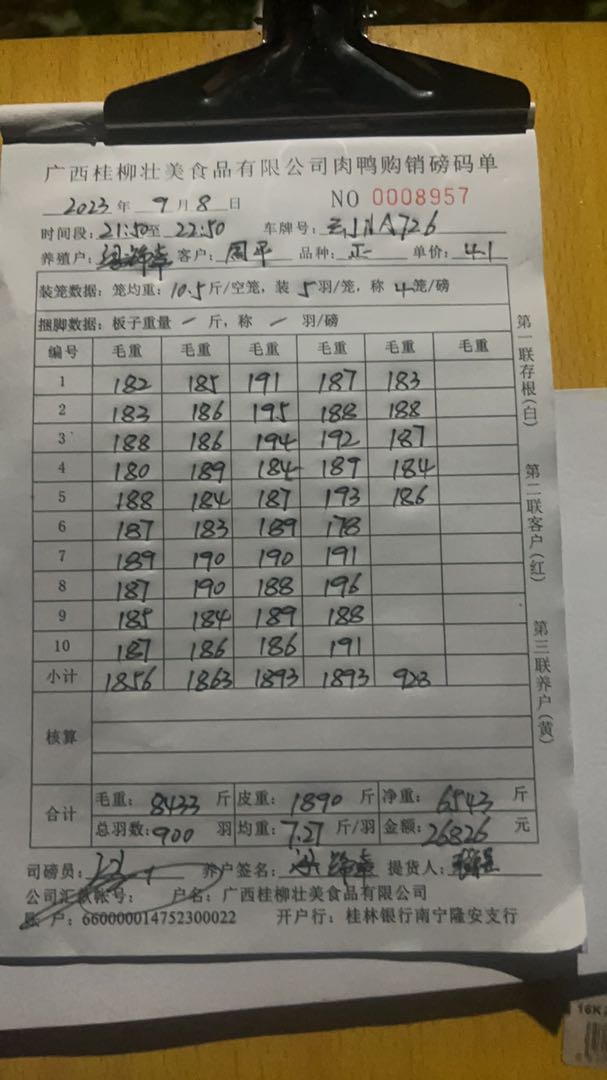 广西桂柳壮美食品有限公司肉鸭购销磅码单
2023 年 9 月 8 日 NO 0008957
时间段: 21:50 至 22:50 车牌号: A726
养殖户: 客户: 周平 品种: 正 单价: 4.1
装笼数据: 笼均重: 10.5 斤/空笼, 装 5 羽/笼, 称 4 笼/磅
捆脚数据: 板子重量 / 斤, 称 / 羽/磅
编号 毛重 毛重 毛重 毛重 毛重 毛重
1 182 185 191 187 183
2 183 186 195 188 188
3 188 186 194 192 187
4 180 189 184 189 184
5 188 184 187 193 186
6 187 183 189 178
7 189 190 190 191
8 187 190 188 196
9 185 184 189 188
10 187 186 186 191
小计 1856 1863 1893 1893 928
核算
合计 毛重: 8433 斤 皮重: 1890 斤 净重: 6543 斤
总羽数: 900 羽 均重: 7.27 斤/羽 金额: 26826 元
司磅员: 养户签名: 提货人:
公司汇款帐号: 户名: 广西桂柳壮美食品有限公司
账 户: 660000014752300022 开户行: 桂林银行南宁隆安支行
第一联存根(白)
第二联客户(红)
第三联养户(黄)
16K